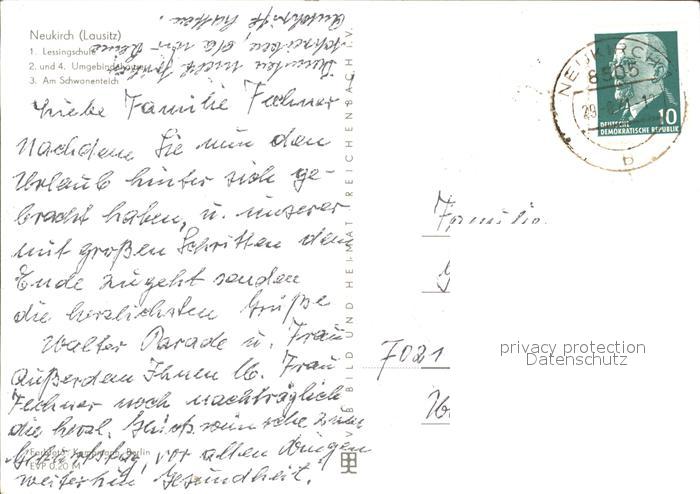 Neukirch (Lausitz)
1. Lessingschule
2. und 4. Umgebindehäuser
3. Am Schwanenteich
Liebe Familie Fechner
Nachdem Sie nun den
Urlaub hinter sich ge-
bracht haben, u. unserer
mit großen Schritten dem
Ende zugeht senden
die herzlichsten Grüße
Walter Parade u. Frau
Außerdem Ihnen lb. Frau
Fechner noch nachträglich
die herzl. Glückwünsche zum
Geburtstag, vor allen Dingen
weiterhin Gesundheit.
konnten nicht
schreiben, da wir keine
Anschrift hatten.
Berlin
EVP 0,20 M
BILD UND HEIMAT REICHENBACH I. V.
NEUKIRCH
8505
b
10
DEUTSCHE
DEMOKRATISCHE REPUBLIK
Familie
7021
privacy protection
Datenschutz